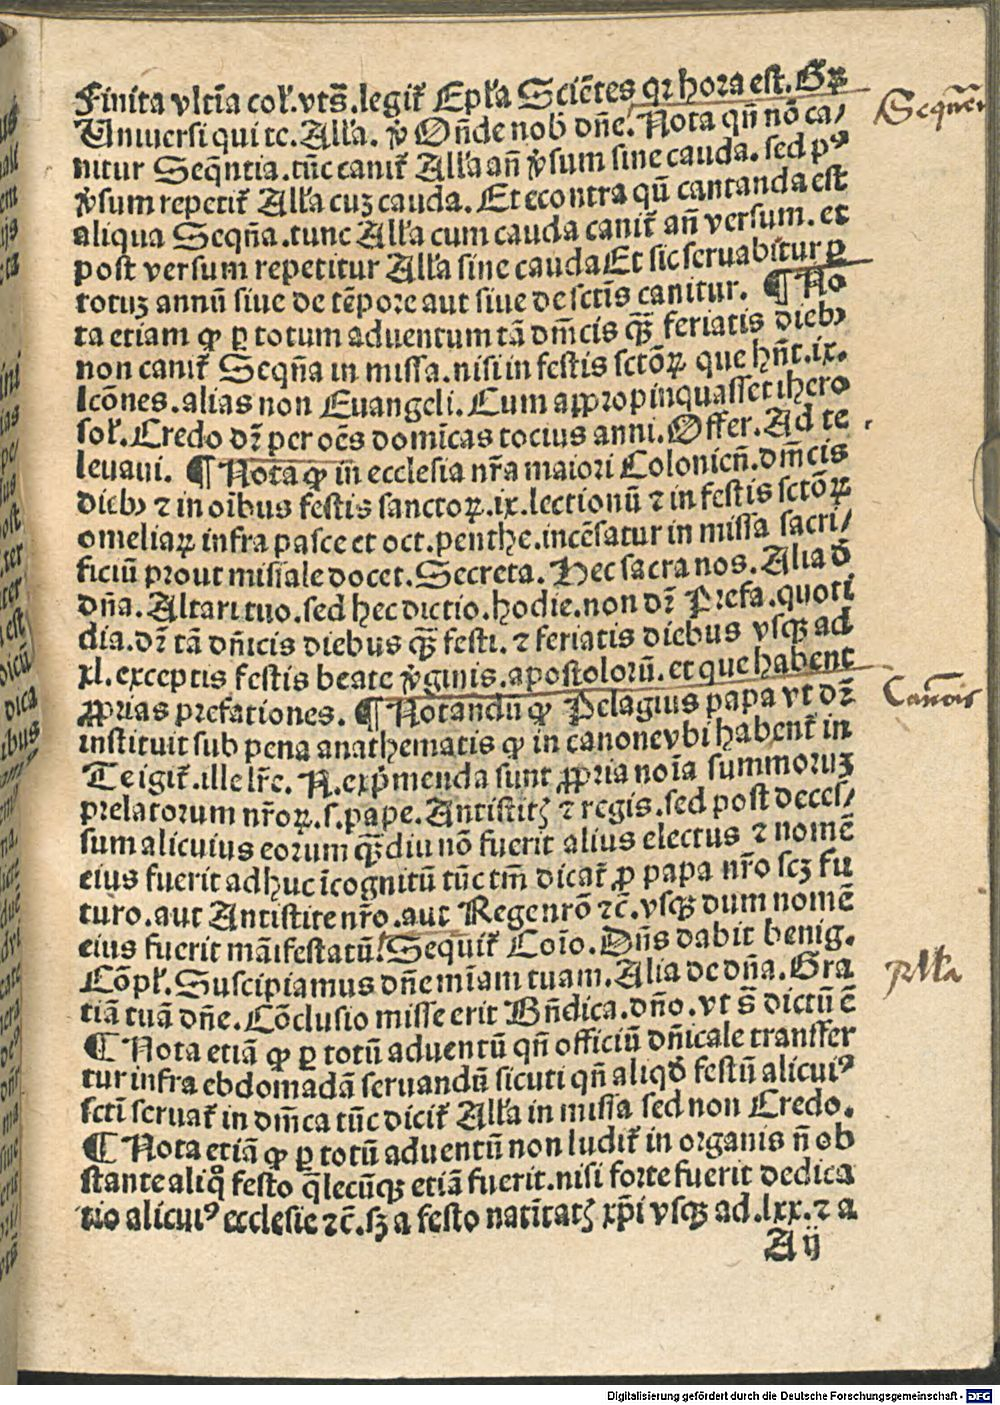 Finita vltīa col᷑.vts̄.legit᷑ Epl᷑a Sciētes qꝛ hora est.Gꝝ
Uniuersi qui te.All᷑a.ꝟ Oñde nob̄ dñe.Nota qñ nō ca/
nitur Seqñtia.tūc canit᷑ All᷑a añ ꝟsum sine cauda.sed pꝰ
ꝟsum repetit᷑ All᷑a cuꝫ cauda.Et econtra qū cantanda est
aliqua Seqña.tunc All᷑a cum cauda canit᷑ añ versum.et
post versum repetitur All᷑a sine cauda Et sic seruabitur ꝑ
totuꝫ annū siue de tēpore aut siue de sctīs canitur. ¶ No
ta etiam ꝙ ꝑ totum aduentum tā dm̄cis qꝫ̄ feriatis dieb⁊
non canit᷑ Seqña in missa.nisi in festis sctōꝝ que hñt.ix.
lcōnes.alias non Euangeli.Cum appropinquasset ihero
sol᷑.Credo dꝛ̄ per oēs domīcas tocius anni.Offer.Ad te
leuaui. ¶ Nota ꝙ in ecclesia nr̄a maiori Coloniceñ.dm̄cis
dieb⁊ ⁊ in oībus festis sanctoꝝ.ix.lectionū ⁊ in festis sctōꝝ
omeliaꝝ infra pasce et oct.penthe.incēsatur in missa sacri/
ficiū prout missale docet.Secreta.Hec sacra nos.Alia ð
dñā.Altari tuo.sed hec dictio.hodie.non dꝛ̄ Prefa.quoti
dia.dꝛ̄ tā dñicis diebus qꝫ̄ festi.⁊ feriatis diebus vsqꝫ ad
xl.exceptis festis beate ꝟginis.apostolorū.et que habent
ꝓprias prefationes. ¶ Notandū ꝙ Pelagius papa vt dꝛ̄
instituit sub pena anathematis ꝙ in canone vbi habent᷑ in
Te igit᷑.ille lr̄e.N.exp̄menda sunt ꝓpria noīa summoruꝫ
prelatorum nr̄oꝝ.s.pape.Antistitꝭ ⁊ regis.sed post deces/
sum alicuius eorum qꝫ̄diu nō fuerit alius electus ⁊ nomē
eius fuerit adhuc īcognitū tūc tm̄ dicat᷑ ꝓ papa nr̄o scꝫ fu
turo.aut Antistite nr̄o.aut Rege nr̄o ⁊c̄.vsqꝫ dum nomē
eius fuerit māifestatū.Sequit᷑ Coīo.Dñs dabit benig.
Cōpl᷑.Suscipiamus dñe mīam tuam.Alia de dñā.Gra
tiā tuā dñe.Cōclusio misse erit Bñdica.dño.vt s̄ dictū ē
¶ Nota etiā ꝙ ꝑ totū aduentū qñ officiū dñicale transfer
tur infra ebdomadā seruandū sicuti qñ aliqð festū alicuiꝰ
sctī seruat᷑ in dm̄ca tūc dicit᷑ All᷑a in missa sed non Credo.
¶ Nota etiā ꝙ ꝑ totū aduentū non ludit᷑ in organis ñ ob
stante aliqͦ festo q̄lecūqꝫ etiā fuerit.nisi forte fuerit dedica
tio alicuiꝰ ecclesie ⁊c̄.sꝫ a festo natītatꝭ xp̄i vsqꝫ ad.lxx.⁊ a
A ij
Canōis
Digitalisierung gefördert durch die Deutsche Forschungsgemeinschaft - DFG